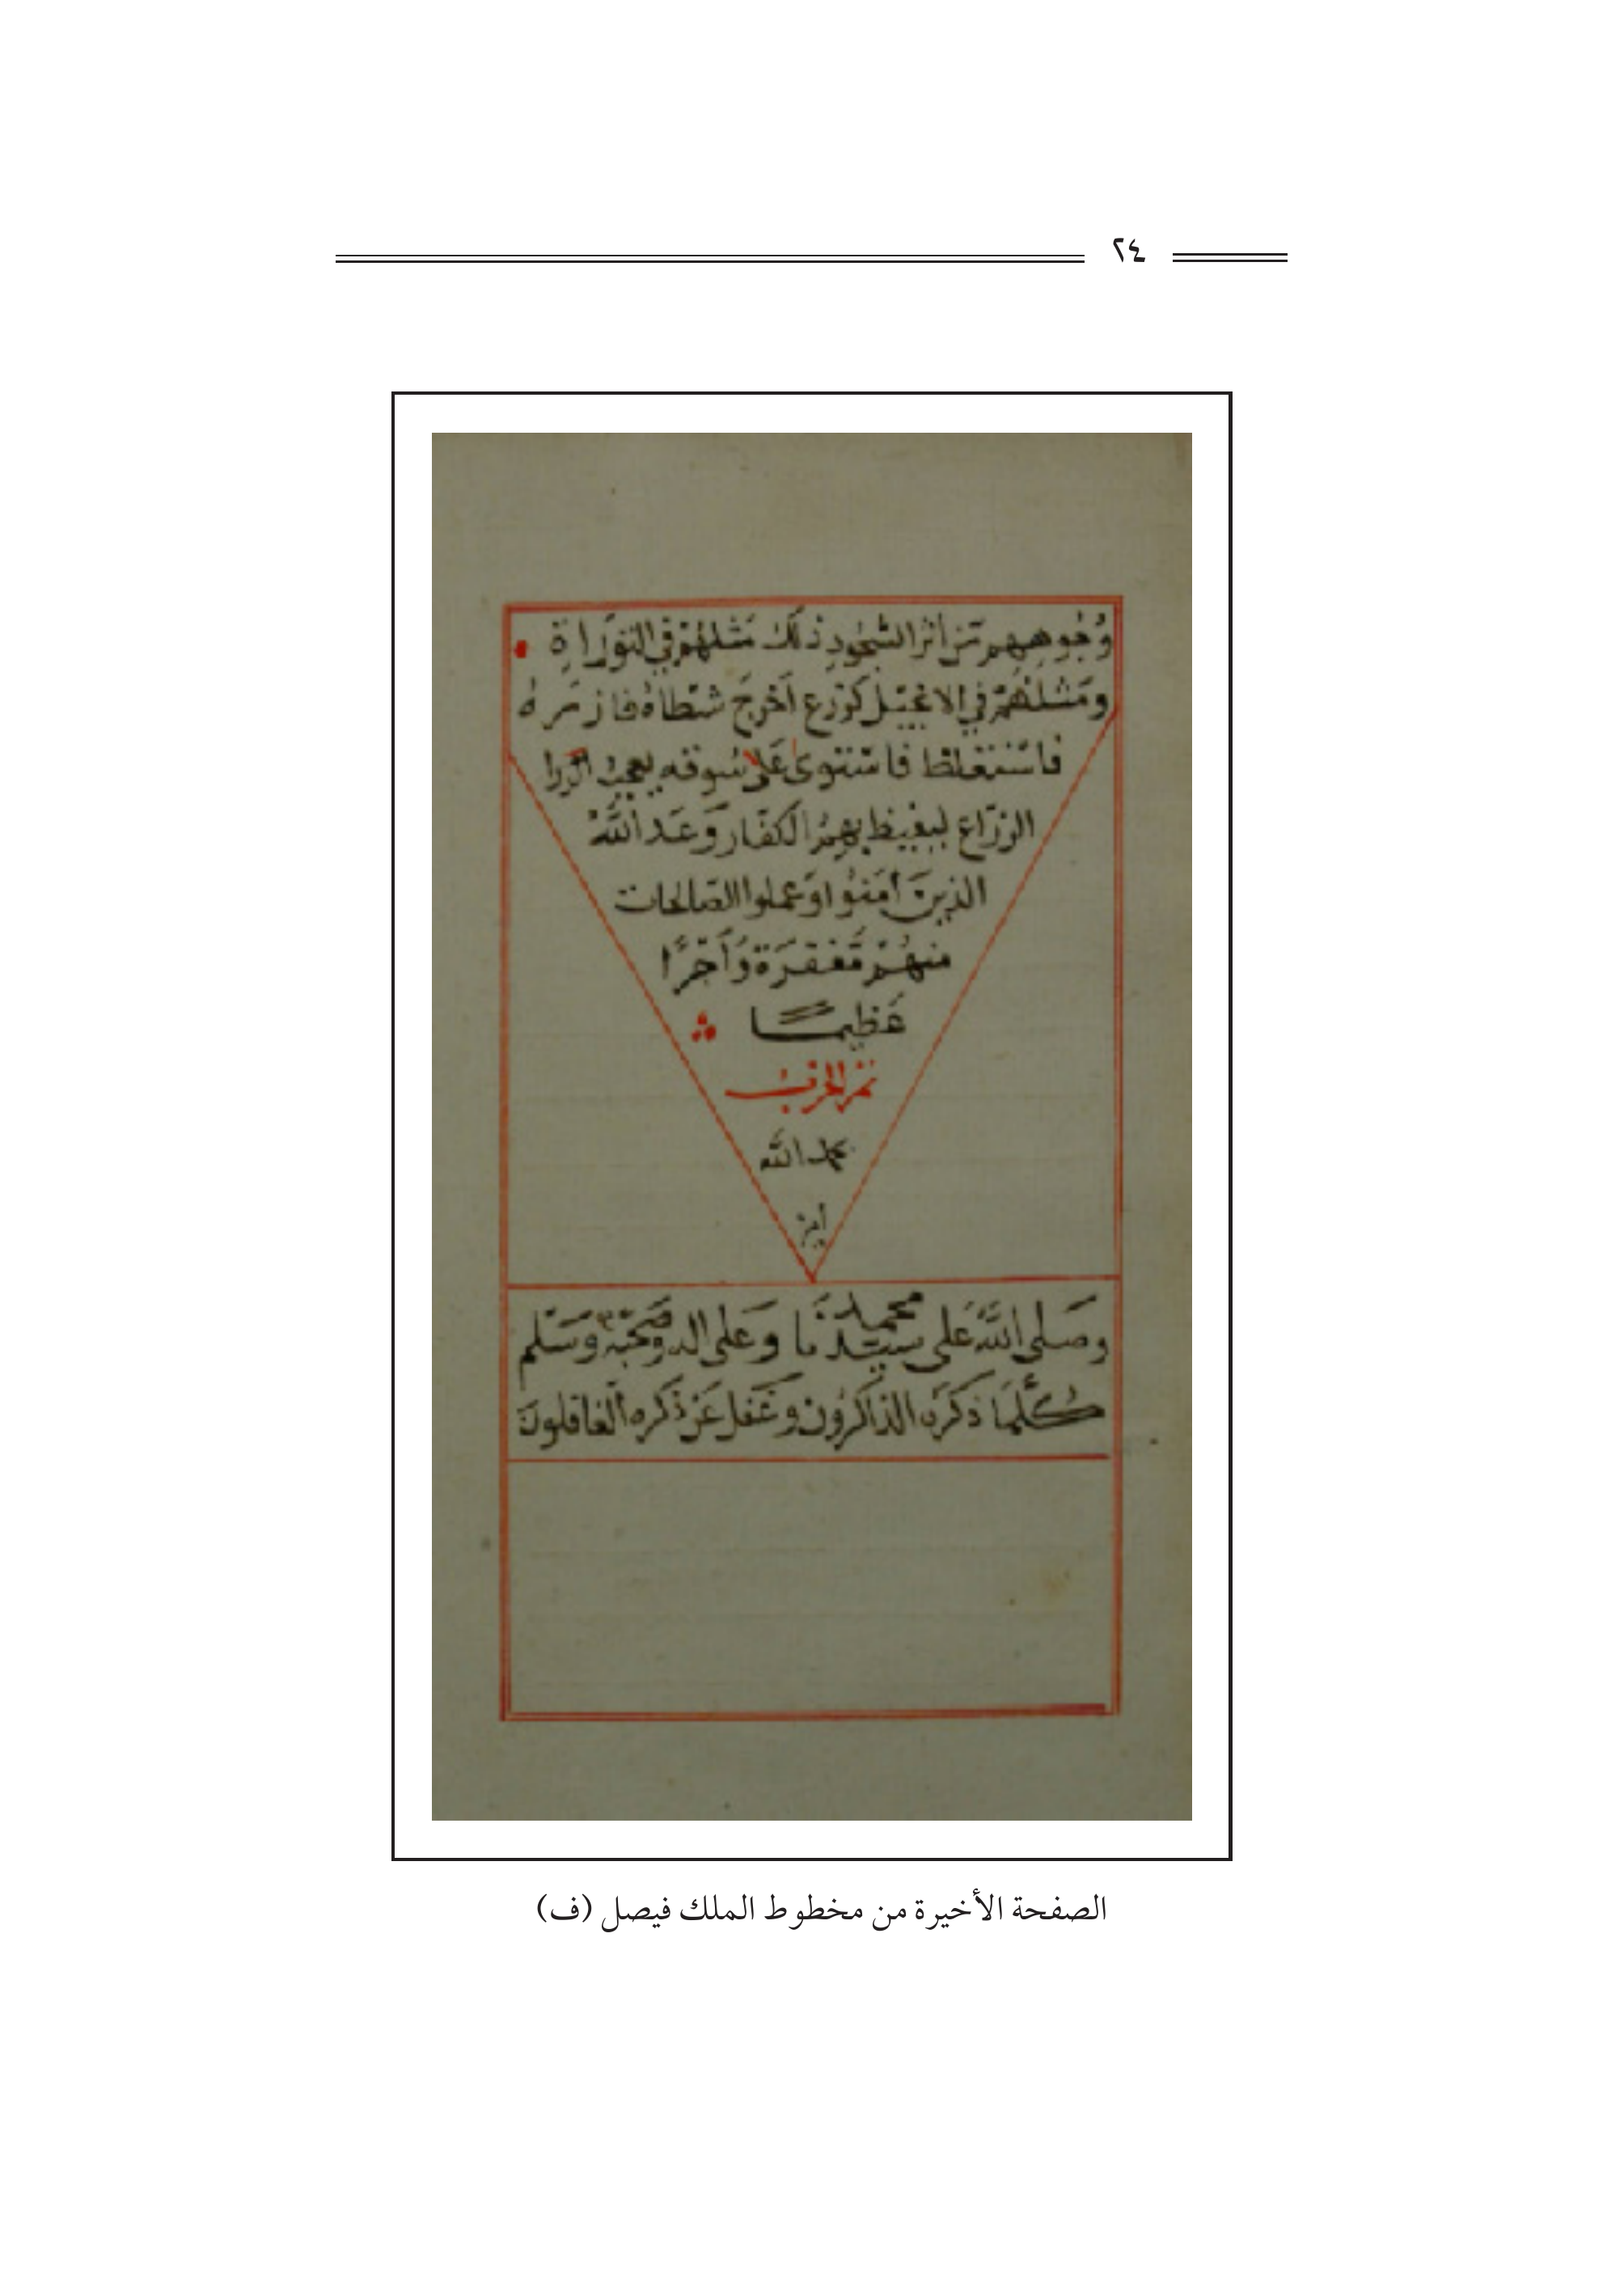 ٢٤
وُجُوهِهِم مّن أثر السّجُودِ ذلكَ مَثلهُمْ في التوْراةِ
ومَثلهُمْ في الانجيْل كزرْع أخرجَ شطاهُ فازرهُ
فاسْتغلظ فاسْتوى عَلى سُوقه يعجبُ الزرا
الزرّاع ليغيظ بهِمُ الكفّار وَعَد اللّهُ
الذينَ امَنُوا وَعملوا الصّالحات
منهُمْ مَّغفرَة وَأجْرًا
عَظيمًا
تم الحزبُ
بحمد الله
امين
وصَلى اللّهُ عَلى سيّدنا محمد وعَلى اله وصَحْبه وَسَلم
كُلّمَا ذكرَه الذاكرُون وغَفل عَن ذكره الغافلونَ
الصفحة الأخيرة من مخطوط الملك فيصل (ف)